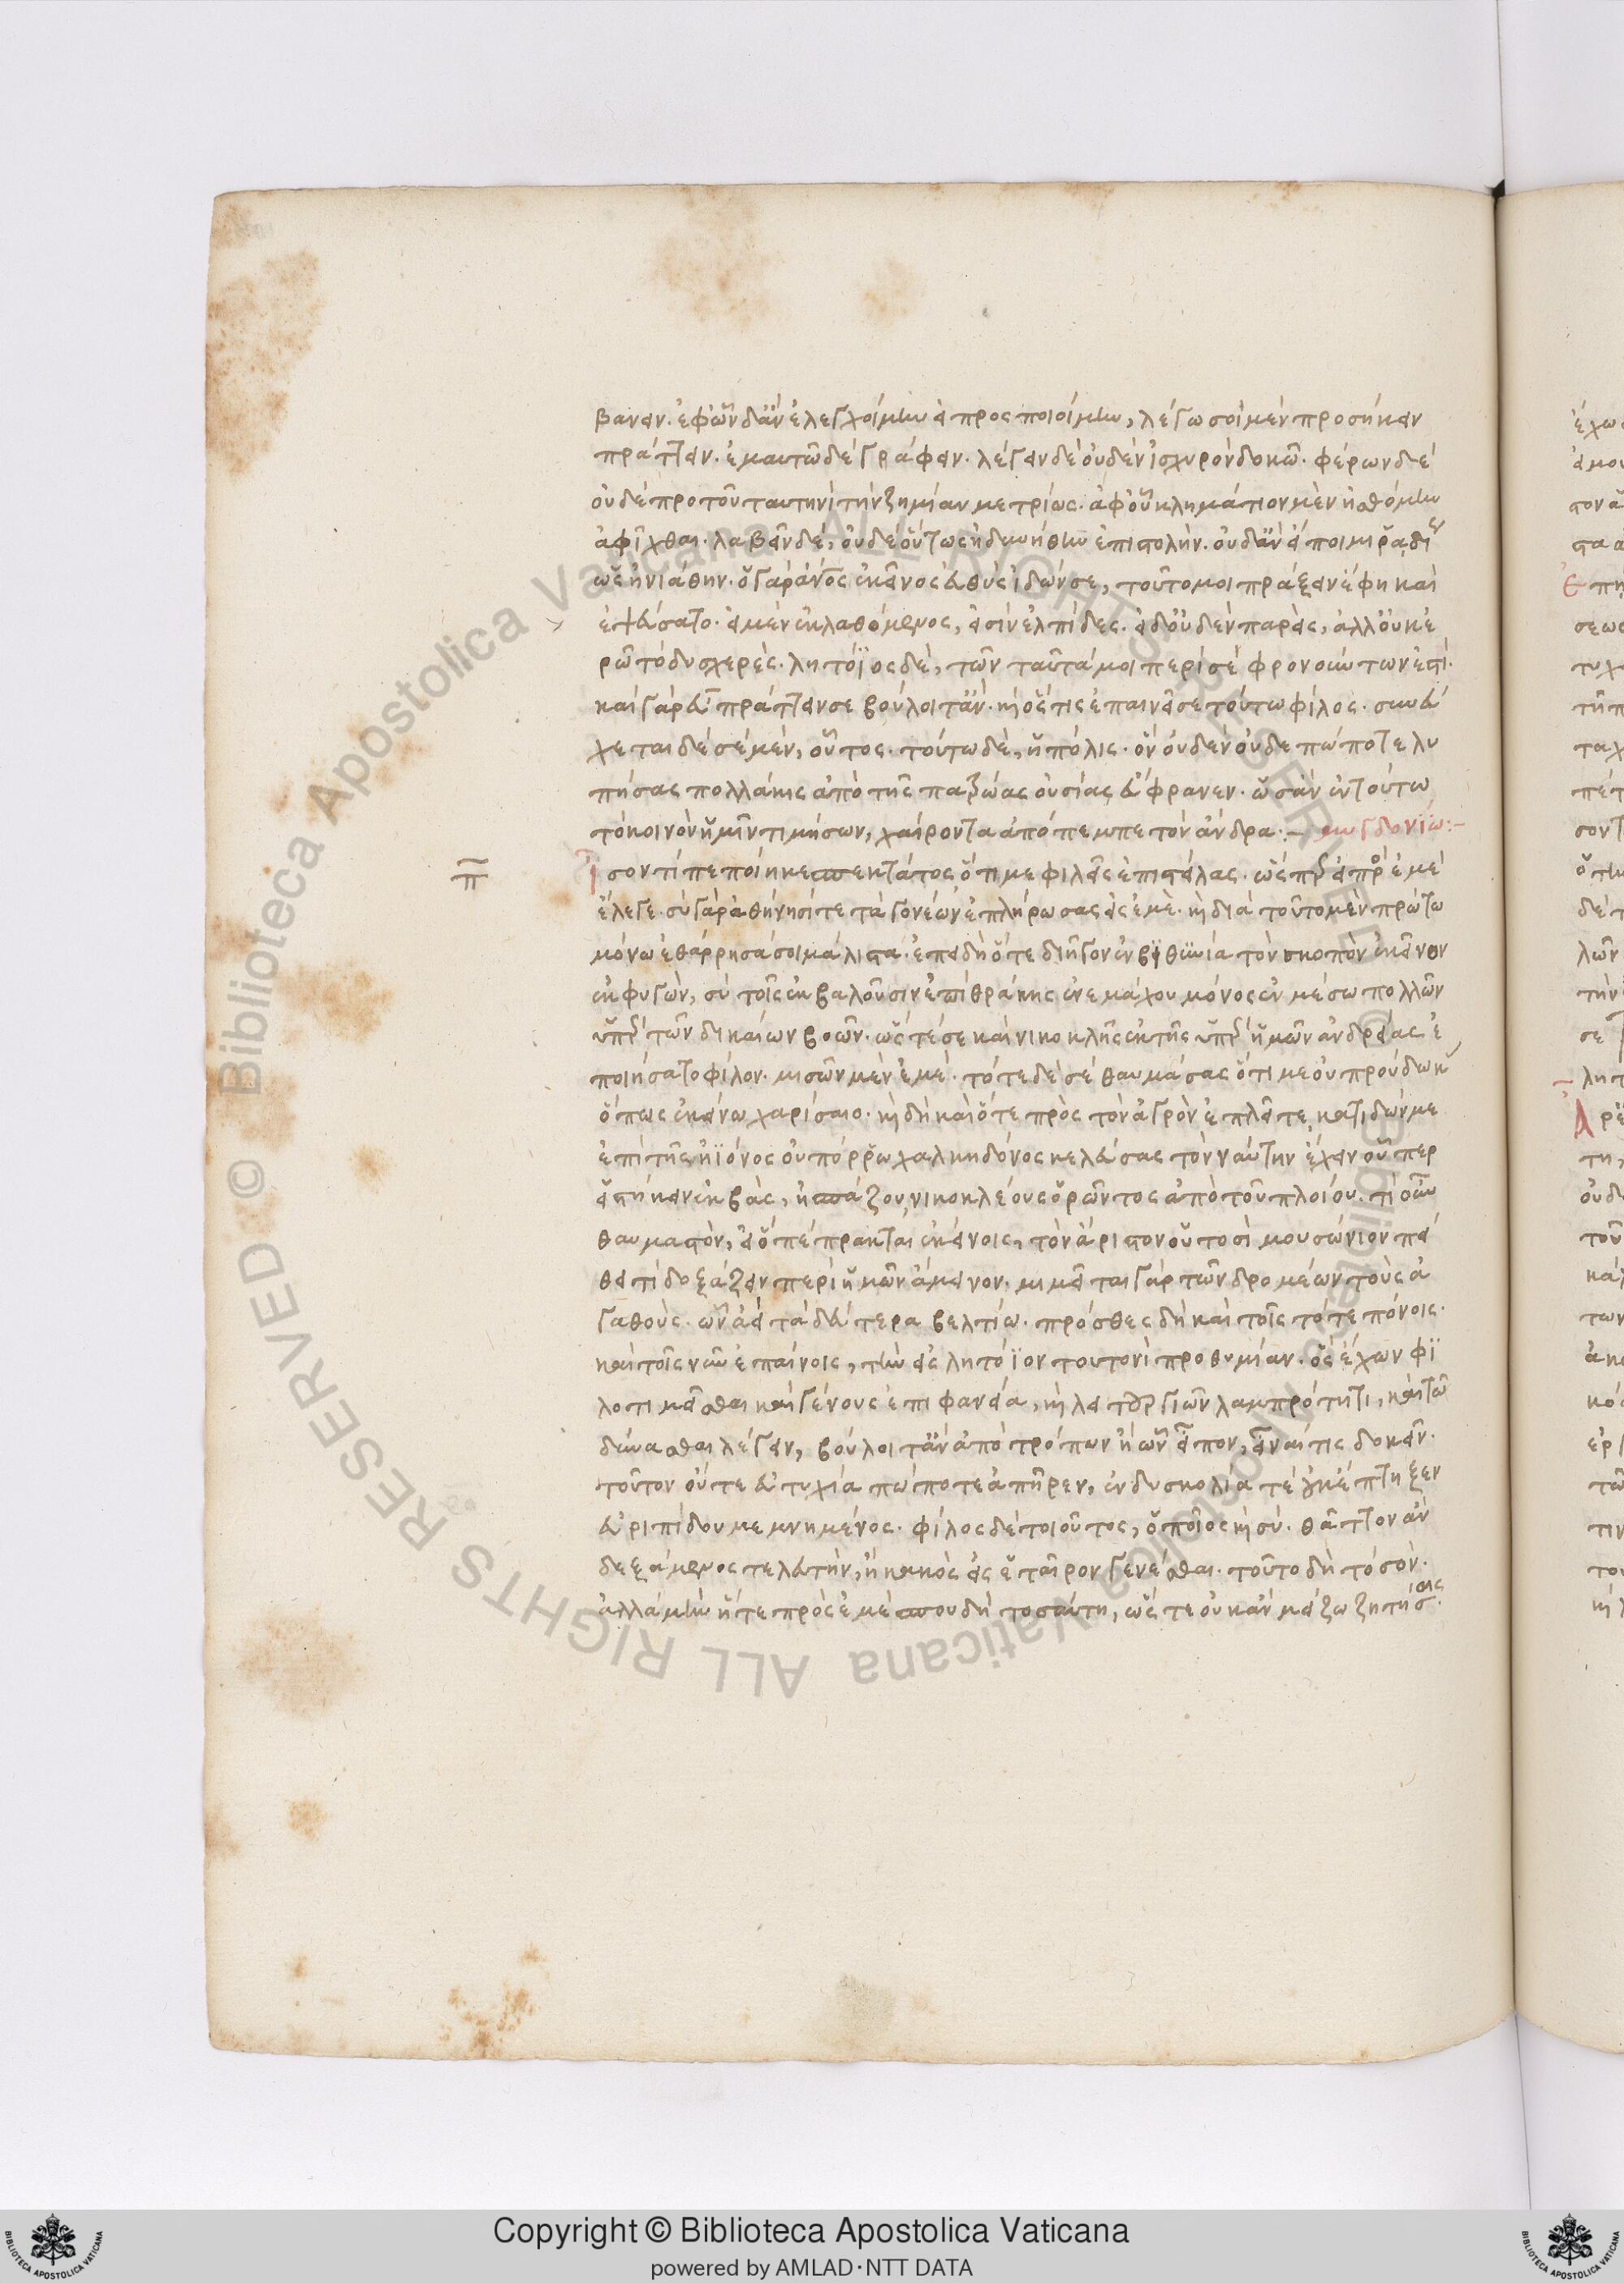 βανειν. ἐφ' ὧν δ' ἂν ἐλεγχοίμην ἃ προσποιοίμην, λέγω σοὶ μὲν προσήκειν
πράττειν. ἐμαυτῶ δὲ γράφειν. λέγειν δὲ οὐδὲν ἰσχυρὸν δοκῶ. φέρων δὲ
οὐδὲ πρὸ τοῦ ταυτηνὶ τὴν ζημίαν μετρίως. ἀφ' οὗ κλημάτιον μὲν ἠσθόμην
ἀφῖχθαι. λαβεῖν δὲ, οὐδὲ οὕτως ἠδυνήθην ἐπιστολὴν. οὐδ' ἂν εἴποιμι ῥαδί
ως ἠνιάθην. ὁ γὰρ ἐκεῖνος εὐθὺς ἰδών σε, τοῦτό μοι πράξειν ἔφη καὶ
ἐψεύσατο. εἰ μὲν ἐκλαθόμενος, εἰσὶν ἐλπίδες. εἰ δ' οὐδὲν παρεὶς, ἀλλ' οὐκ έ
ρῶ τὸ δυσχερές. λητόϊος δὲ, τῶν ταῦτά μοι περὶ σὲ φρονούντων ἐστί.
καὶ γὰρ εὖ πράττειν σε βούλοιτ' ἄν. κἂν ὅστις ἐπαινεῖ σε τούτω φίλος. συνεύ
χεται δὲ σὲ μὲν, οὗτος. τούτω δὲ, ἡ πόλις. ὃν οὐδὲν οὐδεπώποτε λυ
πήσας πολλάκις ἀπὸ τῆς πατρώας οὐσίας εὔφρανεν. ὡς ἂν ἐν τούτω
τὸ κοινὸν ἡμῖν τιμήσων, χαίροντα ἀπόπεμπε τὸν ἄνδρα:– μυγδονίω:–
π
Ἴσον τί πεποίηκε σπεκτάτος ὅτι με φιλεῖς ἐπιστείλας. ὥσπερ εἰ πρὸς ἐμὲ
ἔλεγε. σὺ γὰρ ἀθήνησί τε τὰ γονέων ἐπλήρωσας εἰς ἐμέ. καὶ διὰ τοῦτο μὲν πρώτω
μόνω ἐθάρρησά σοι μάλιστα. ἐπειδὴ ὅτε διῆγον ἐν βϊθϋνία τὸν σκοπὸν ἐκεῖνον
ἐκφυγὼν, σὺ τοῖς ἐκβαλοῦσιν ἐπὶ θράκης ἐνεμάχου μόνος ἐν μέσω πολλῶν
ὑπὲρ τῶν δικαίων βοῶν. ὥστέ σε καὶ νικοκλῆς ἐκ τῆς ὑπὲρ ἡμῶν ἀνδρείας ἐ
ποιήσατο φίλον. μισῶν μὲν ἐμέ. τότε δὲ σὲ θαυμάσας ὅτι με οὐ προὔδωκ
ὅπως ἐκείνω χαρίσαιο. καὶ δὴ καὶ ὅτε πρὸς τὸν ἀγρὸν ἐπλεῖτε, κατιδών με
ἐπὶ τῆς ἠϊόνος οὐ πόρρω χαλκηδόνος κελεύσας τὸν ναύτην ἔχειν οὗπερ
εἱστήκειν ἐκβὰς, ἠσπάζου, νικοκλέους ὁρῶντος ἀπὸ τοῦ πλοίου. τί οὖν
θαυμαστὸν, εἰ ὃ πέπρακται ἐκείνοις, τὸν ἄριστον οὑτοσὶ μουσώνιον πεί
θει τὶ δοξάζειν περὶ ἡμῶν ἄμεινον. μιμεῖται γὰρ τῶν δρομέων τοὺς ἀ
γαθούς. ὧν ἀεὶ τὰ δεύτερα βελτίω. πρόσθες δὴ καὶ τοῖς τότε πόνοις.
καὶ τοῖς νῦν ἐπαίνοις, τὴν εἰς λητόϊον τουτονὶ προθυμίαν. ὃς ἔχων φϊ
λοτιμεῖσθαι καὶ γένους ἐπιφανεία, καὶ λειτουργιῶν λαμπρότητι, καὶ τῶ
δύνασθαι λέγειν, βούλοιτ' ἂν ἀπὸ τρόπων ἢ ὧν εἶπον, εἶναί τις δοκεῖν.
τοῦτον οὔτε εὐτυχία πώποτε ἀπῆρεν, ἐν δυσκολία τὲ ἔπτηξεν
εὐριπίδου μεμνημένος. φίλος δὲ τοιοῦτος, ὁποῖος καὶ σύ. θᾶττον ἂν
δεξάμενος τελευτὴν, ἢ κακὸς εἰς ἑταῖρον γενέσθαι. τοῦτο δὴ τὸ σόν.
ἀλλὰ μὴν ἥ τε πρὸς ἐμὲ σπουδὴ τοσαύτη, ὥστε οὐκ ἂν μείζω ζητήσαις.